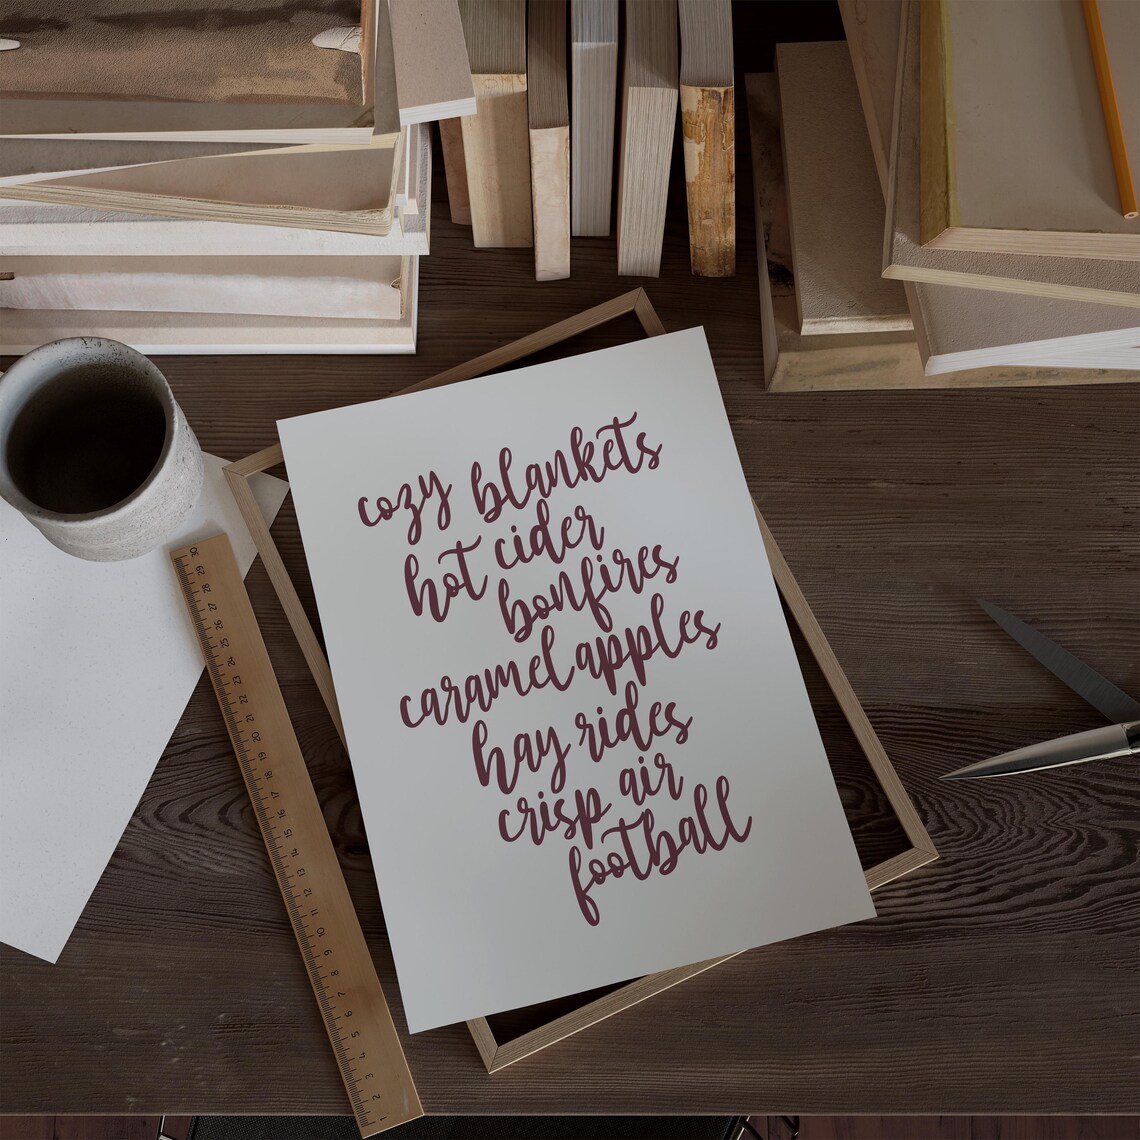 cozy blankets
hot cider
bonfires
caramel apples
hay rides
crisp air
football
30 29 28 27 26 25 24 23 22 21 20 19 18 17 16 15 14 13 12 11 10 9 8 7 6 5 4 3 2 1